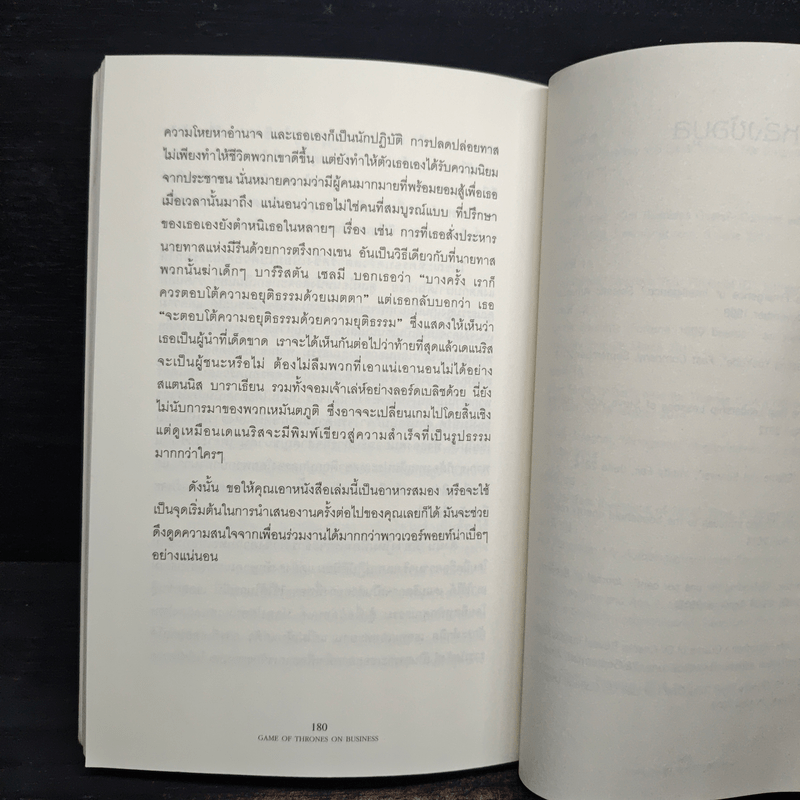 ความโหยหาอำนาจ และเธอเองก็เป็นนักปฏิบัติ การปลดปล่อยทาส
ไม่เพียงทำให้ชีวิตพวกเขาดีขึ้น แต่ยังทำให้ตัวเธอเองได้รับความนิยม
จากประชาชน นั่นหมายความว่ามีผู้คนมากมายที่พร้อมยอมสู้เพื่อเธอ
เมื่อเวลานั้นมาถึง แน่นอนว่าเธอไม่ใช่คนที่สมบูรณ์แบบ ที่ปรึกษา
ของเธอเองยังตำหนิเธอในหลายๆ เรื่อง เช่น การที่เธอสั่งประหาร
นายทาสแห่งมีรีนด้วยการตรึงกางเขน อันเป็นวิธีเดียวกับที่นายทาส
พวกนั้นฆ่าเด็กๆ บาร์ริสตัน เซลมี บอกเธอว่า “บางครั้ง เราก็
ควรตอบโต้ความอยุติธรรมด้วยเมตตา” แต่เธอกลับบอกว่า เธอ
“จะตอบโต้ความอยุติธรรมด้วยความยุติธรรม” ซึ่งแสดงให้เห็นว่า
เธอเป็นผู้นำที่เด็ดขาด เราจะได้เห็นกันต่อไปว่าท้ายที่สุดแล้วเดแนริส
จะเป็นผู้ชนะหรือไม่ ต้องไม่ลืมพวกที่เอาแน่เอานอนไม่ได้อย่าง
สแตนนิส บาราเธียน รวมทั้งจอมเจ้าเล่ห์อย่างลอร์ดเบลิชด้วย นี่ยัง
ไม่นับการมาของพวกเหมันตภูติ ซึ่งอาจจะเปลี่ยนเกมไปโดยสิ้นเชิง
แต่ดูเหมือนเดแนริสจะมีพิมพ์เขียวสู่ความสำเร็จที่เป็นรูปธรรม
มากกว่าใครๆ
ดังนั้น ขอให้คุณเอาหนังสือเล่มนี้เป็นอาหารสมอง หรือจะใช้
เป็นจุดเริ่มต้นในการนำเสนองานครั้งต่อไปของคุณเลยก็ได้ มันจะช่วย
ดึงดูดความสนใจจากเพื่อนร่วมงานได้มากกว่าพาวเวอร์พอยท์น่าเบื่อๆ
อย่างแน่นอน
180
GAME OF THRONES ON BUSINESS